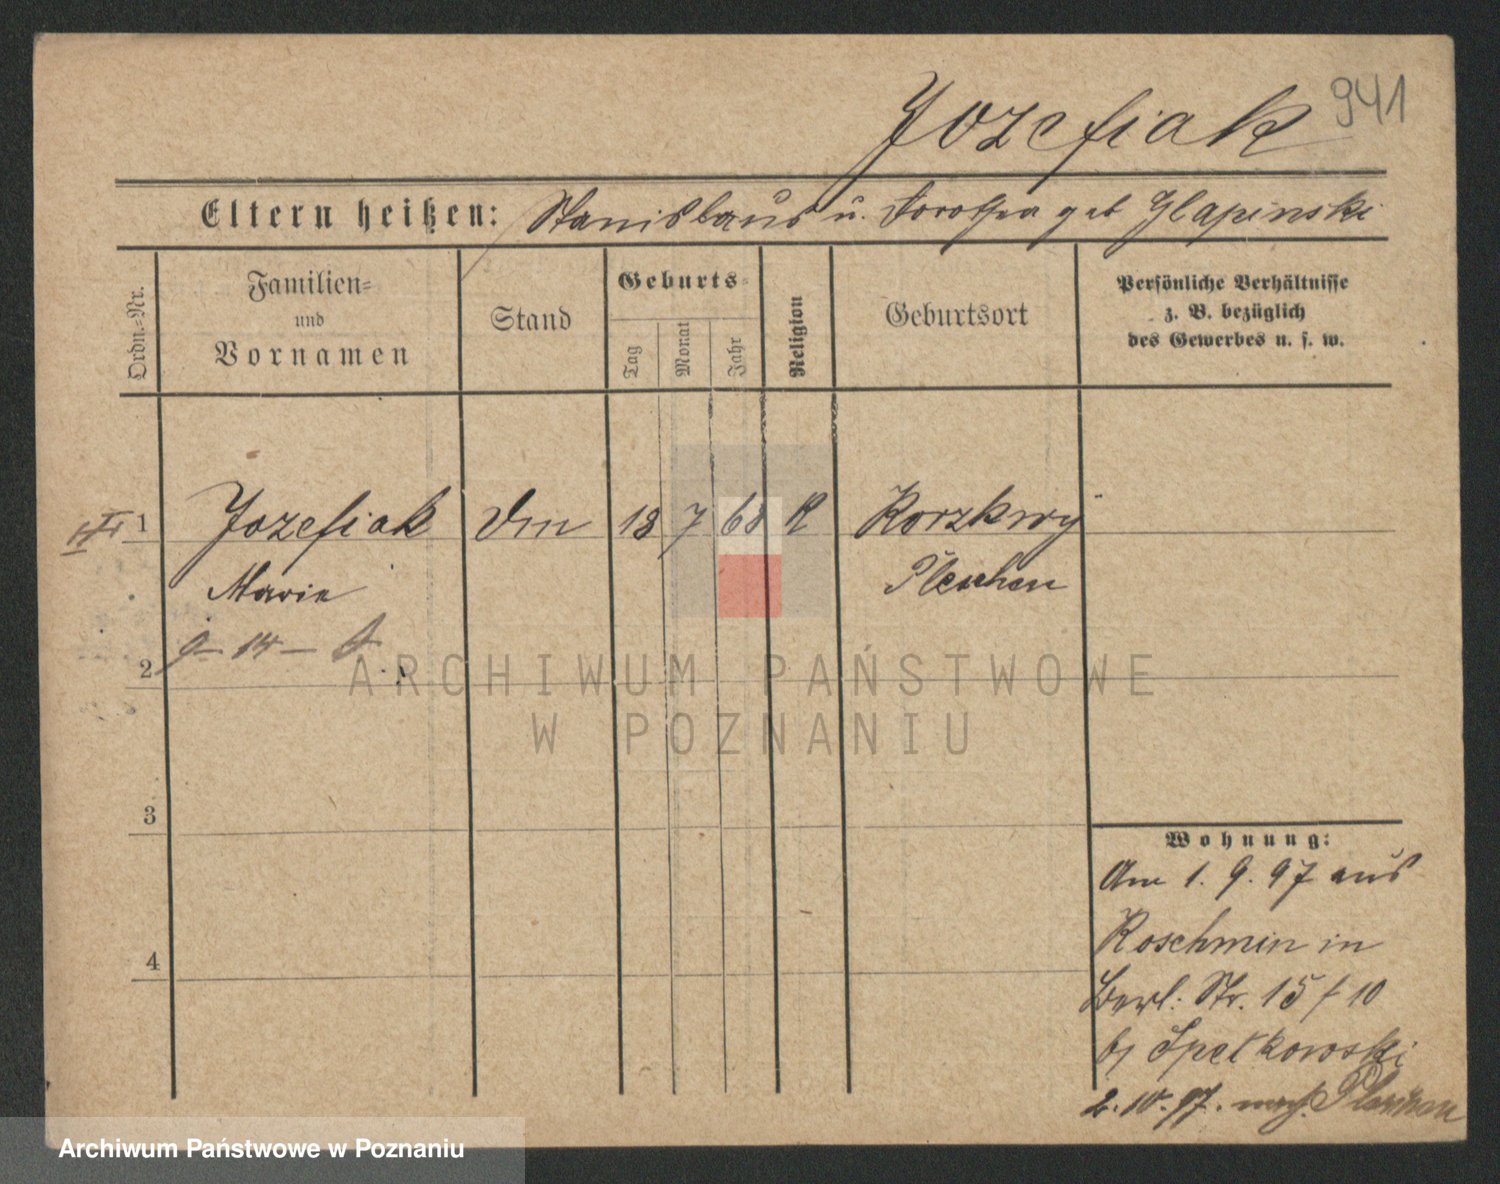 Jozefiak 941
Eltern heißen: Stanislaus u. Dorothea geb Glapinski
Ordn.-Nr.
Familien-
und
Vornamen
Stand
Geburts-
Tag
Monat
Jahr
Religion
Geburtsort
Persönliche Verhältnisse
z. B. bezüglich
des Gewerbes u. s. w.
1 Jozefiak 18 7 68 K Korzkwy
Marie Pleschen
g. 14 –
2
3
4
Wohnung:
Am 1. 9. 97 aus
Koschmin in
Berl. Str. 15/10
bj Spetkowski
2. 10. 97. nach Pleschen
ARCHIWUM PAŃSTWOWE
W POZNANIU
Archiwum Państwowe w Poznaniu